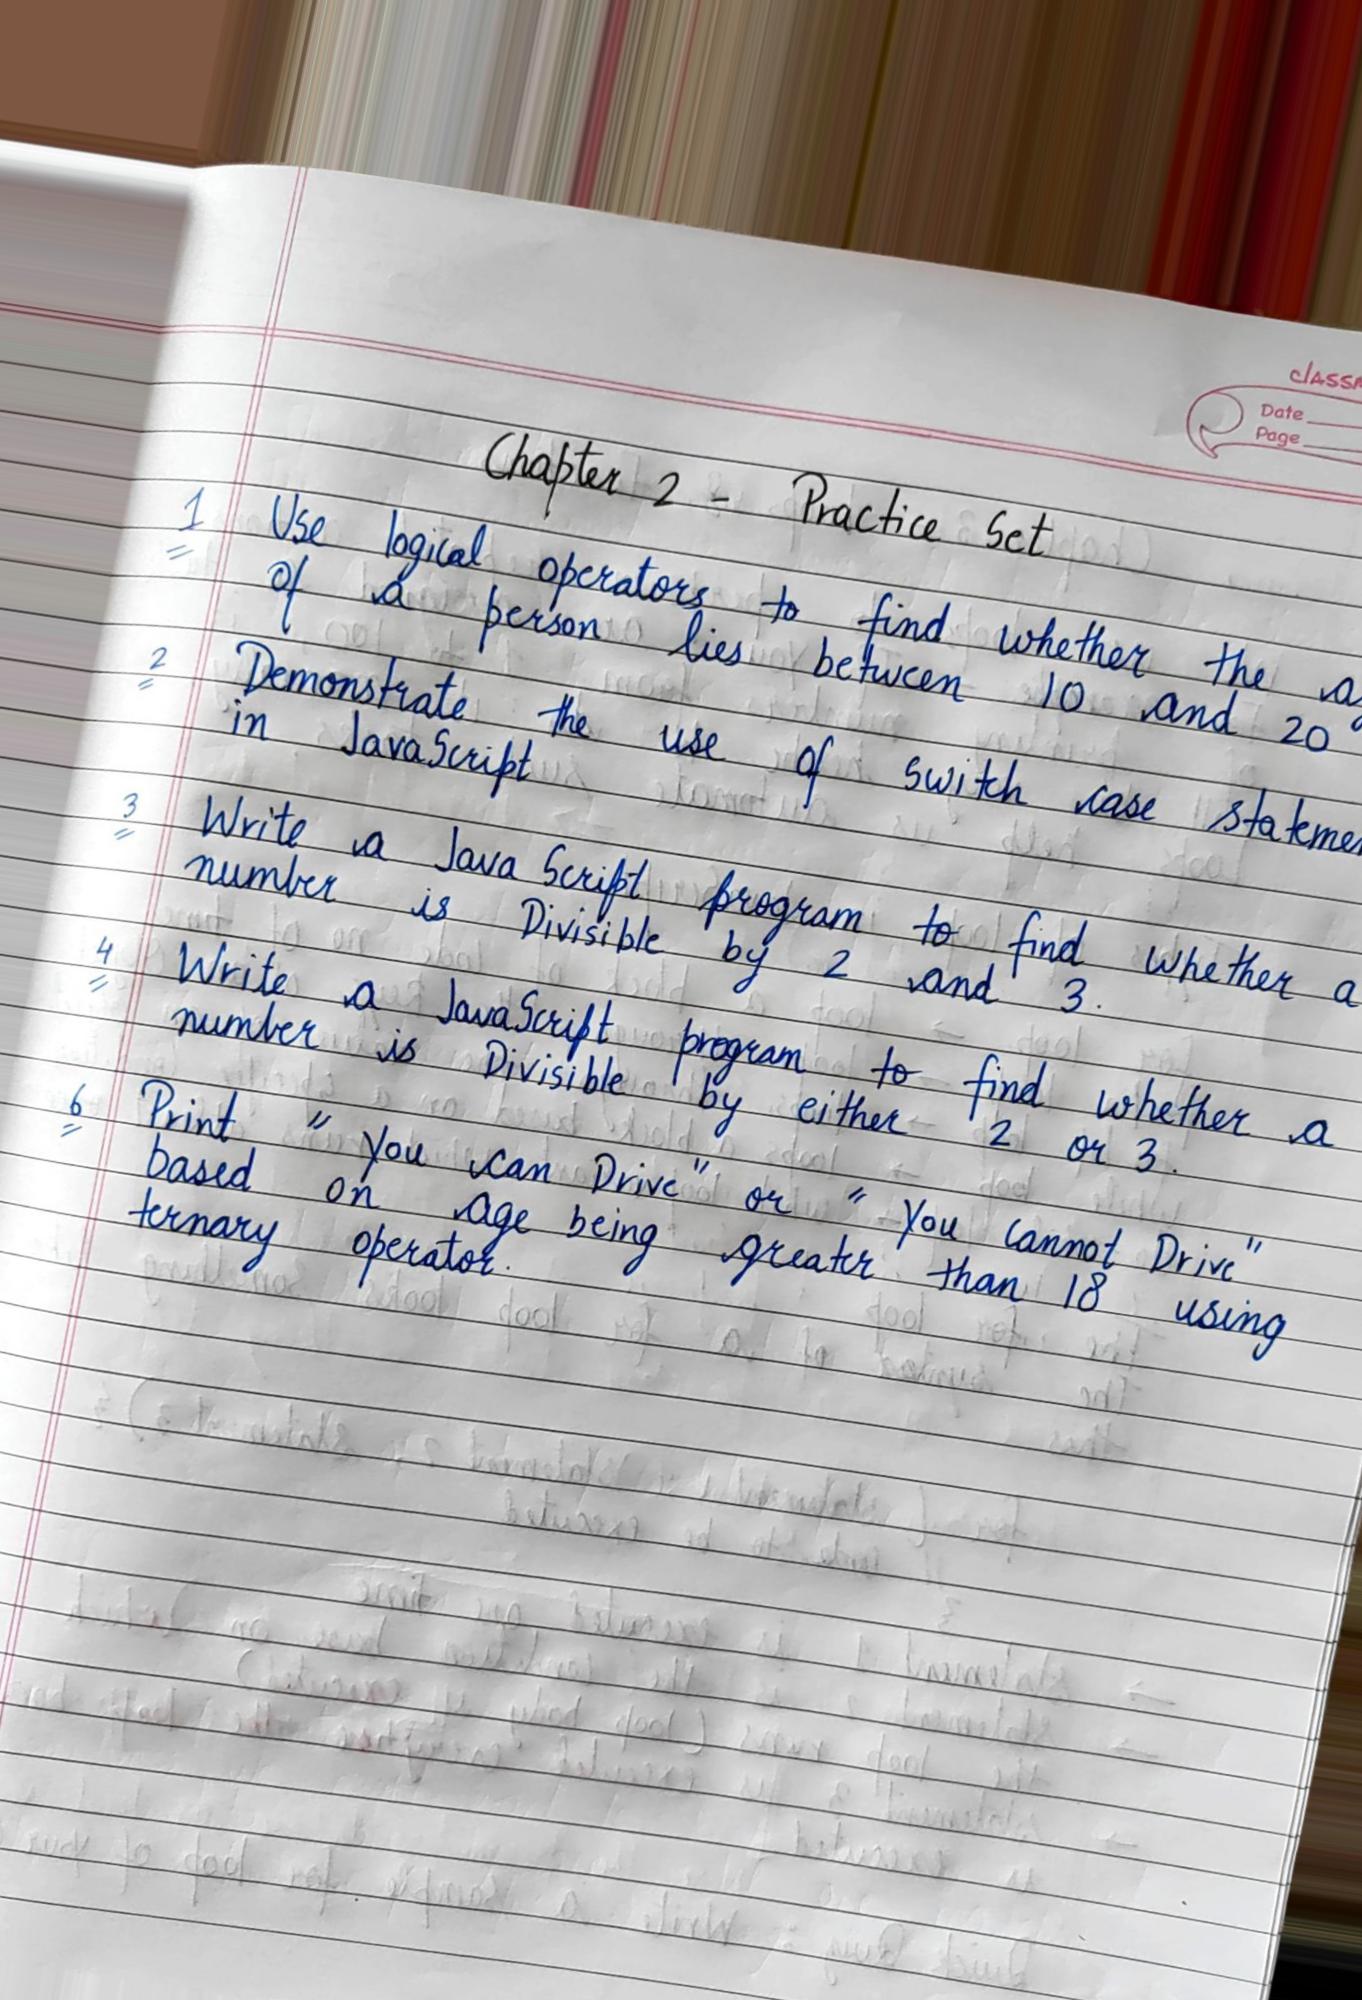 classm
Date
Page
Chapter 2 - Practice Set
1 Use logical operators to find whether the ag
of a person lies between 10 and 20
2 Demonstrate the use of switch case statemen
in JavaScript
3 Write a JavaScript program to find whether a
number is Divisible by 2 and 3.
4 Write a JavaScript program to find whether a
number is Divisible by either 2 or 3.
6 Print " You can Drive" or " You cannot Drive"
based on age being greater than 18 using
ternary operator.